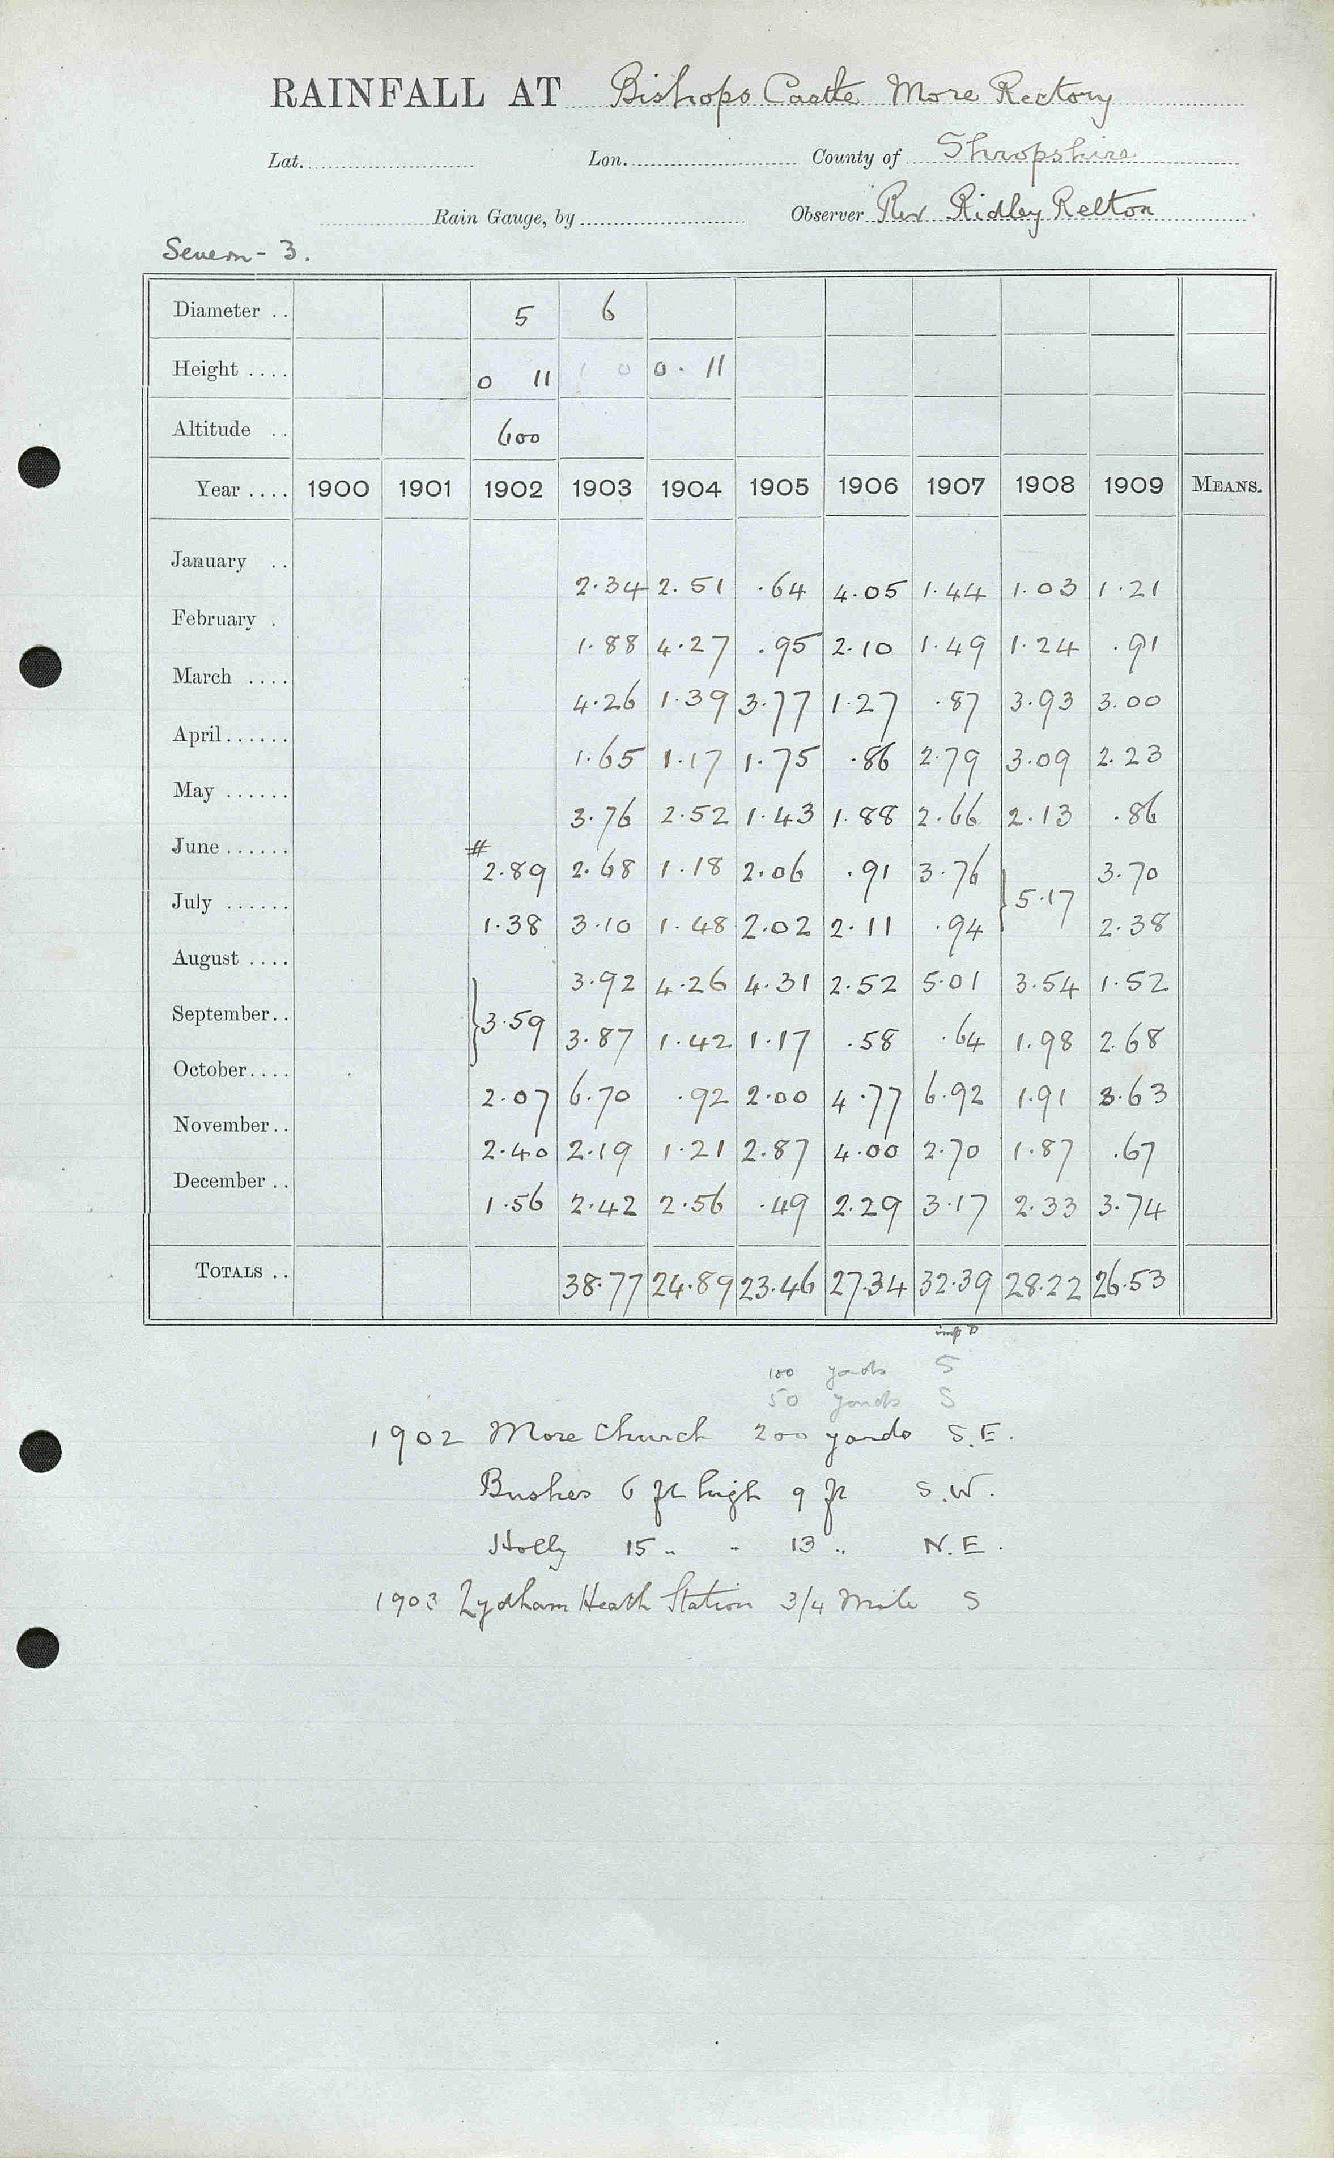 RAINFALL AT Bishops Castle More Rectory
Lat. Lon. County of Shropshire
Rain Gauge, by Observer Rev Ridley Relton
Severn - 3.
Diameter .. 5 6
Height .... 0 11 1 0 0. 11
Altitude .. 600
Year .... 1900 1901 1902 1903 1904 1905 1906 1907 1908 1909 MEANS.
January .. 2.34 2.51 .64 4.05 1.44 1.03 1.21
February . 1.88 4.27 .95 2.10 1.49 1.24 .91
March .... 4.26 1.39 3.77 1.27 .87 3.93 3.00
April...... 1.65 1.17 1.75 .86 2.79 3.09 2.23
May ...... 3.76 2.52 1.43 1.88 2.66 2.13 .86
June...... # 2.89 2.68 1.18 2.06 .91 3.76 3.70
July ...... 1.38 3.10 1.48 2.02 2.11 .94 } 5.17 2.38
August .... 3.92 4.26 4.31 2.52 5.01 3.54 1.52
September.. } 3.59 3.87 1.42 1.17 .58 .64 1.98 2.68
October.... 2.07 6.70 .92 2.00 4.77 6.92 1.91 3.63
November.. 2.40 2.19 1.21 2.87 4.00 2.70 1.87 .67
December .. 1.56 2.42 2.56 .49 2.29 3.17 2.33 3.74
TOTALS .. 38.77 24.89 23.46 27.34 32.39 28.22 26.53
100 yards S
50 yards S
1902 More Church 200 yards S.E.
Bushes 6 ft high 9 ft S.W.
Holly 15 " " 13 " N.E.
1903 Lydham Heath Station 3/4 Mile S